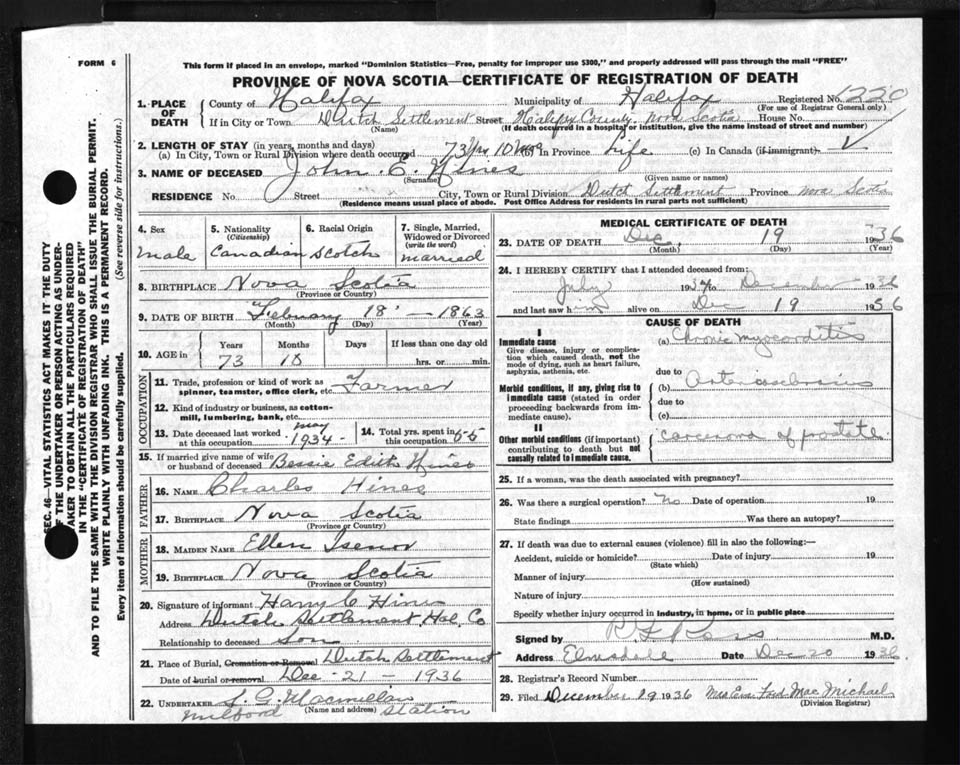 FORM 6
This form if placed in an envelope, marked "Dominion Statistics—Free, penalty for improper use $300," and properly addressed will pass through the mail "FREE"
PROVINCE OF NOVA SCOTIA—CERTIFICATE OF REGISTRATION OF DEATH
1. PLACE OF DEATH
County of Halifax Municipality of Halifax Registered No. 1220
(For use of Registrar General only)
If in City or Town Dutch Settlement Street Halifax County, Nova Scotia House No.
(Name) (If death occurred in a hospital or institution, give the name instead of street and number)
2. LENGTH OF STAY (in years, months and days)
(a) In City, Town or Rural Division where death occurred 73 yrs 10 mos (b) In Province Life (c) In Canada (if immigrant)
3. NAME OF DECEASED John E. Hines
(Surname) (Given name or names)
RESIDENCE No. Street City, Town or Rural Division Dutch Settlement Province Nova Scotia
(Residence means usual place of abode. Post Office Address for residents in rural parts not sufficient)
SEC. 46—VITAL STATISTICS ACT MAKES IT THE DUTY
OF THE UNDERTAKER OR PERSON ACTING AS UNDER-
TAKER TO OBTAIN ALL THE PARTICULARS REQUIRED
IN THE "CERTIFICATE OF REGISTRATION OF DEATH"
AND TO FILE THE SAME WITH THE DIVISION REGISTRAR WHO SHALL ISSUE THE BURIAL PERMIT.
WRITE PLAINLY WITH UNFADING INK. THIS IS A PERMANENT RECORD.
Every item of information should be carefully supplied. (See reverse side for instructions.)
4. Sex
male
5. Nationality
(Citizenship)
Canadian
6. Racial Origin
Scotch
7. Single, Married,
Widowed or Divorced
(write the word)
married
8. BIRTHPLACE Nova Scotia
(Province or Country)
9. DATE OF BIRTH February 18 — 1863
(Month) (Day) (Year)
10. AGE in
Years Months Days If less than one day old
73 10 hrs. or min.
OCCUPATION
11. Trade, profession or kind of work as
spinner, teamster, office clerk, etc. Farmer
12. Kind of industry or business, as cotton-
mill, lumbering, bank, etc.
13. Date deceased last worked
at this occupation May 1934
14. Total yrs. spent in
this occupation 55
15. If married give name of wife
or husband of deceased Bessie Edith Hines
FATHER
16. NAME Charles Hines
17. BIRTHPLACE Nova Scotia
(Province or Country)
MOTHER
18. MAIDEN NAME Ellen Isenor
19. BIRTHPLACE Nova Scotia
(Province or Country)
20. Signature of informant Harry C Hines
Address Dutch Settlement, Hal. Co
Relationship to deceased Son
21. Place of Burial, Cremation or Removal Dutch Settlement
Date of burial or removal Dec - 21 - 1936
22. UNDERTAKER Macmillan
(Name and address)
Milford Station
MEDICAL CERTIFICATE OF DEATH
23. DATE OF DEATH Dec. 19 1936
(Month) (Day) (Year)
24. I HEREBY CERTIFY that I attended deceased from:
July 193 to December 1936
and last saw him alive on Dec 19 1936
CAUSE OF DEATH
I
Immediate cause
Give disease, injury or complica-
tion which caused death, not the
mode of dying, such as heart failure,
asphyxia, asthenia, etc.
(a) Chronic myocarditis
due to
Morbid conditions, if any, giving rise to
immediate cause (stated in order
proceeding backwards from im-
mediate cause).
(b)
due to
(c)
II
Other morbid conditions (if important)
contributing to death but not
causally related to immediate cause.
carcinoma of prostate
25. If a woman, was the death associated with pregnancy?
26. Was there a surgical operation? no Date of operation 19
State findings Was there an autopsy?
27. If death was due to external causes (violence) fill in also the following:—
Accident, suicide or homicide? Date of injury 19
(State which)
Manner of injury
(How sustained)
Nature of injury
Specify whether injury occurred in industry, in home, or in public place
Signed by Ross M.D.
Address Elmsdale Date Dec 20 1936
28. Registrar's Record Number
29. Filed December 29 1936 Mrs Eva Ford MacMichael
(Division Registrar)